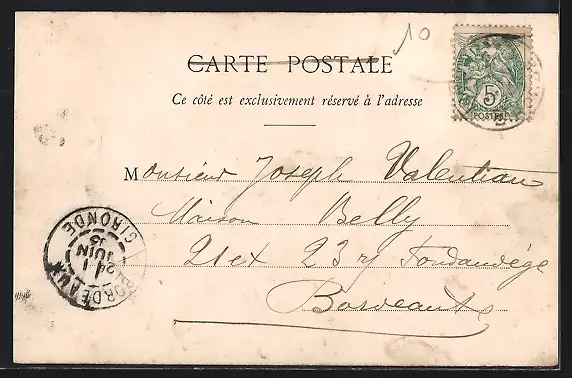 10
CARTE POSTALE
Ce côté est exclusivement réservé à l'adresse
5
POSTES
Monsieur Joseph Valentian
Maison Belly
21 et 23 r Fondaudège
Bordeaux
BORDEAUX
24
JUIN
GIRONDE